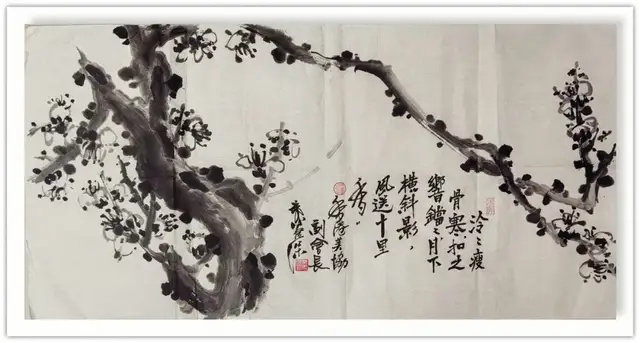 冷々瘦
骨寒扣之
響鐺々月下
橫斜影，
風送十里
香。
美協
副會長